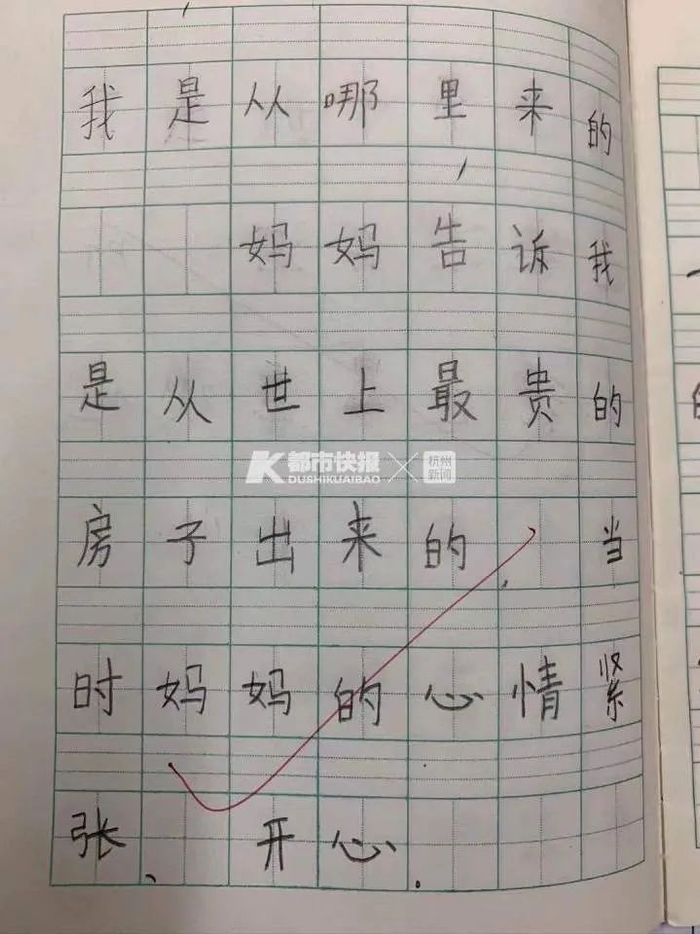 我是从哪里来的
妈妈告诉我
是从世上最贵的
K都市快报 × 杭州新闻
DUSHIKUAIBAO
房子出来的,当
时妈妈的心情紧
张、开心.